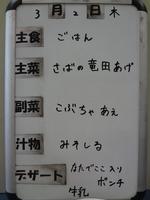 3月2日木
主食 ごはん
主菜 さばの竜田あげ
副菜 こぶちゃあえ
汁物 みそしる
デザート なたでここ入り
ポンチ
牛乳